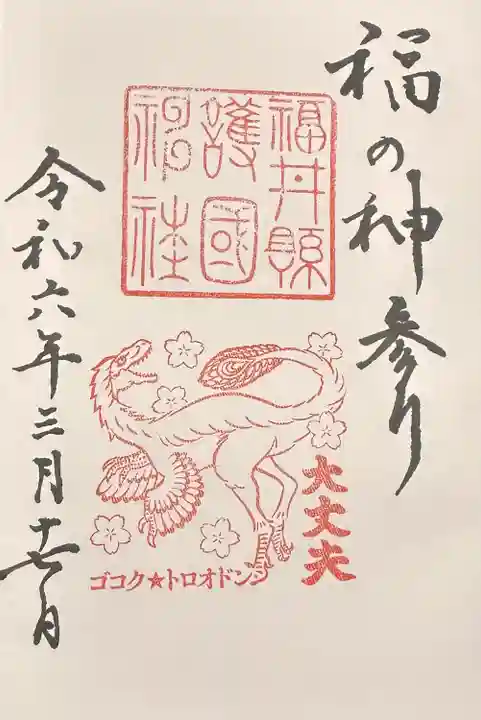 福の神参り
福井縣
護國
神社
大丈夫
ゴコク★トロオドンシ
令和六年三月十七日